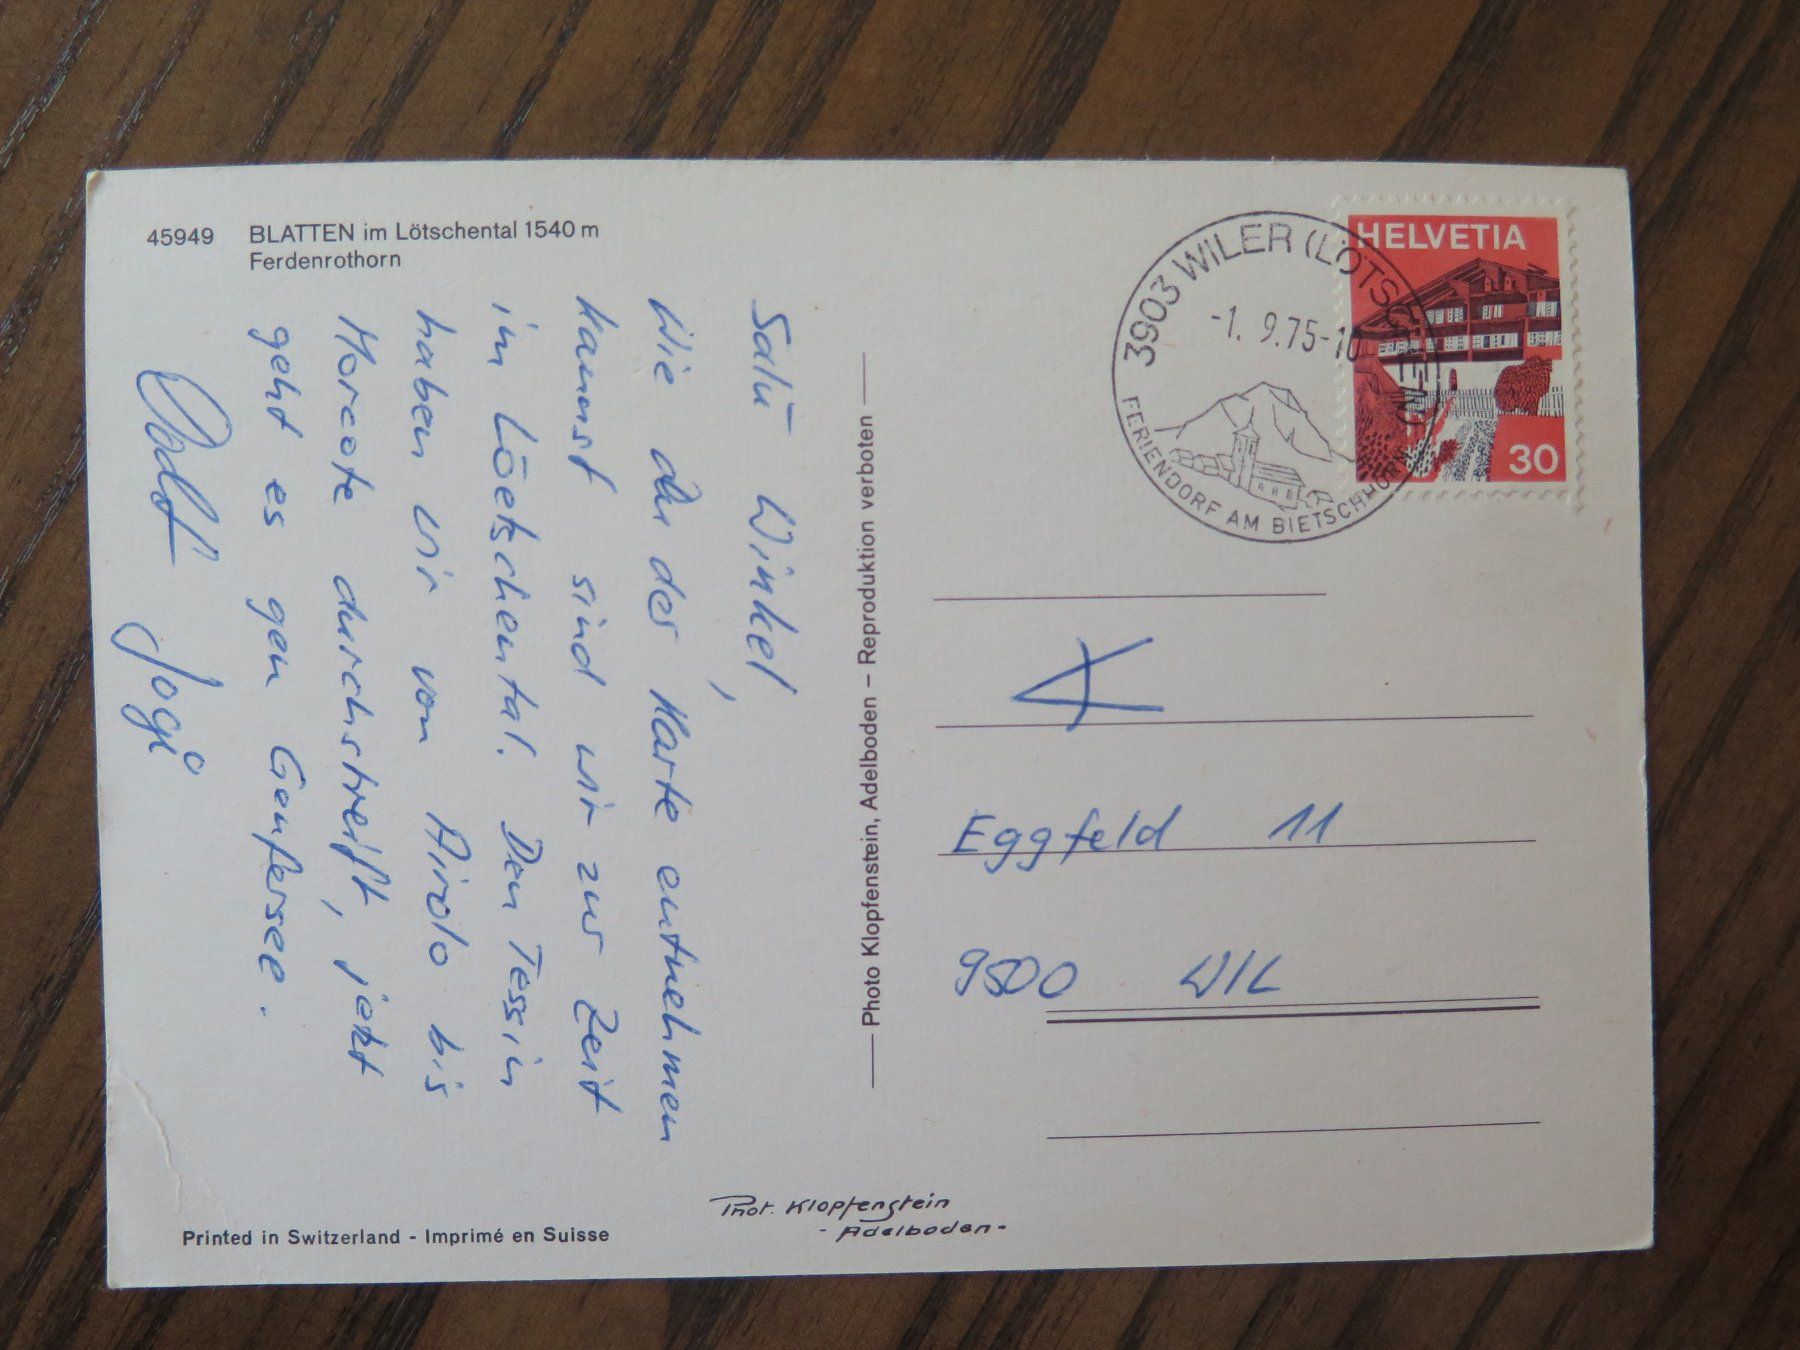 45949 BLATTEN im Lötschental 1540 m
Ferdenrothorn
Salü Winkel,
Wie du der Karte entnehmen
kannst sind wir zur Zeit
im Löetschental. Den Tessin
haben wir von Airolo bis
Morcote durchstreift, jetzt
geht es gen Genfersee.
Jogi
Photo Klopfenstein, Adelboden – Reproduktion verboten
3903 WILER (LÖTSCHEN)
-1. 9.75-10
FERIENDORF AM BIETSCHHORN
HELVETIA
30
Eggfeld 11
9500 WIL
Phot. Klopfenstein
- Adelboden -
Printed in Switzerland - Imprimé en Suisse